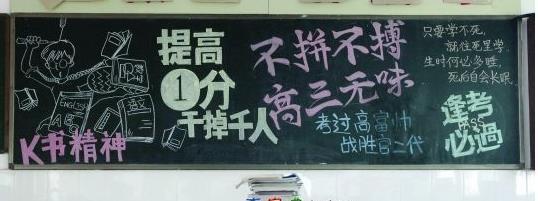 K书精神
ENGLISH
语文
提高
1分
干掉千人
不拼不搏
高三无味
考过高富帅
战胜官二代
只要学不死,
就往死里学.
生时何必多睡,
死后自会长眠.
逢考
必過
PASS